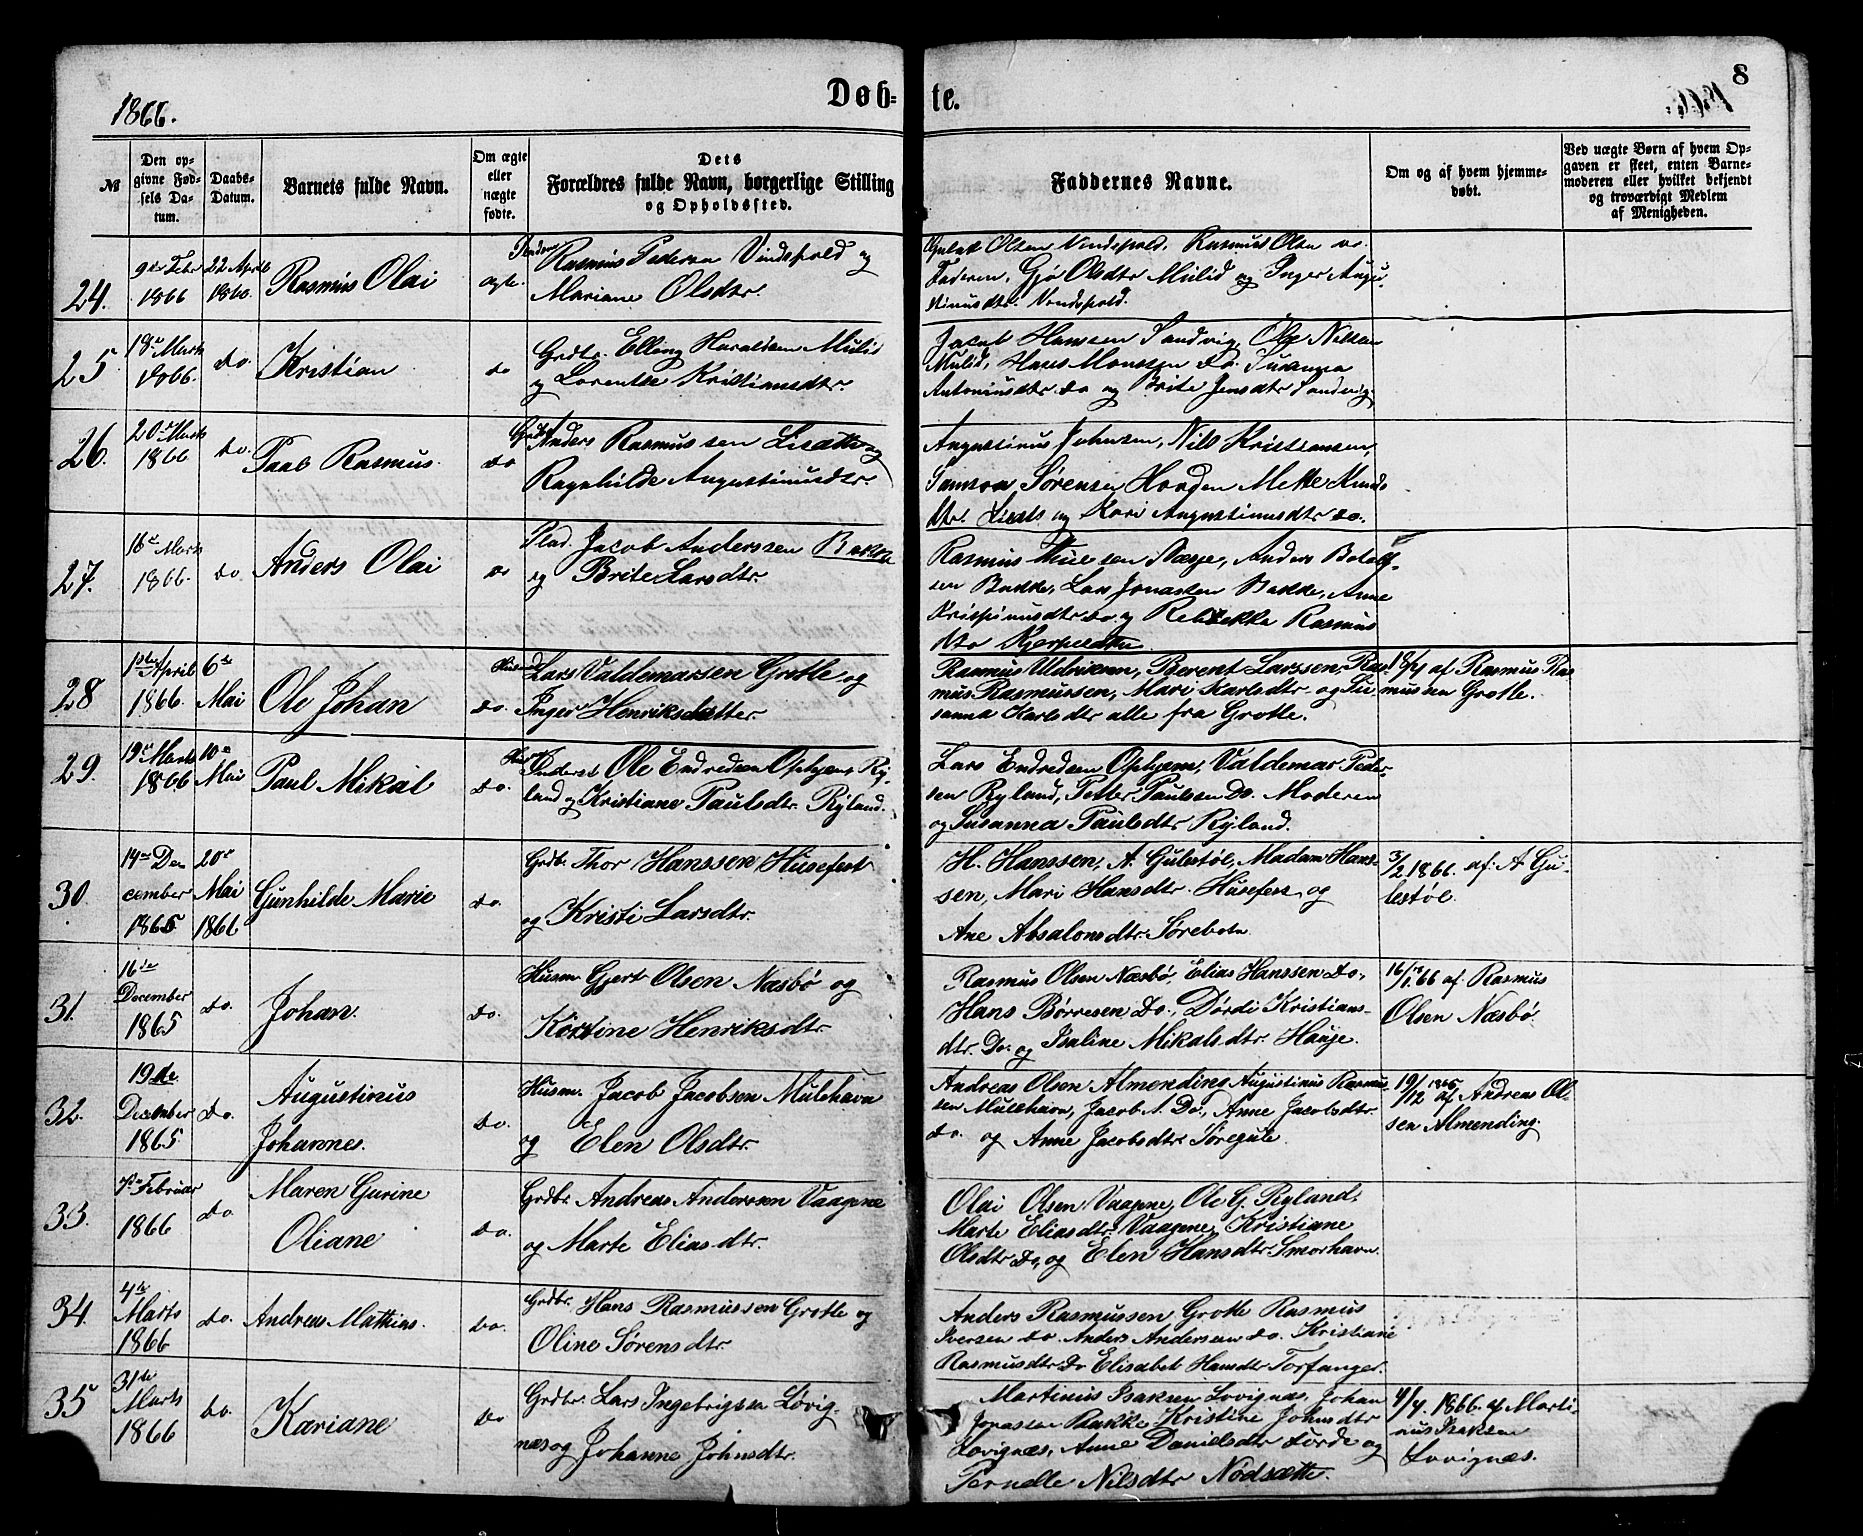 1866.
Døb-
te.
8
№
Den op-
givne Fød-
sels Da-
tum.
Daabs-
Datum.
Barnets fulde Navn.
Om ægte
eller
uægte
fødte.
Dets
Forældres fulde Navn, borgerlige Stilling
og Opholdssted.
Faddernes Navne.
Om og af hvem hjemme-
døbt.
Ved uægte Børn af hvem Op-
gaven er skeet, enten Barne-
moderen eller hvilket bekjendt
og troværdigt Medlem
af Menigheden.
24.
9de Febr
1866
22 April
1866.
Rasmus Olai
ægte.
Rasmus Pedersen Vindspold og
Mariane Olsdtr.
Olsen Vindspold, Rasmus Olsen do.
Faderen, Gjø Olsdtr Mulid og Inger Augu-
stinusdtr. Vindspold.
25
18de Marts
1866.
do.
Kristian
do
Grdbr. Elling Haraldsen Mulid
og Lorentse Kristiansdtr.
Jacob Hanssen Sandvig, Ole Nilsen
Mulid, Hans Monssen do. Susanna
Antoniusdtr do og Brite Jensdtr Sandvig
26.
20de Marts
1866
do.
Paul Rasmus.
do
Grdbr. Anders Rasmussen Lisætt og
Ragnhilde Augustinusdtr.
Augustinus Johnsen, Nils Kristiansen,
Samson Sørensen Hovden Mette Knuds
dtr. Lisæt og Kari Augustinusdtr do.
27.
16de Marts
1866.
do
Anders Olai
do
Jacob Anderssen Bakke
og Brite Larsdtr
Rasmus Næsje, Anders Botolf-
sen Bakke, Lars Jonassen Bakke, Anne
Krispinusdtr do. og Rebekka Rasmus
dtr
28
1ste April
1866.
6te
Mai
Ole Johan
do.
Husmd. Lars Valdemarsen Grotle og
Inger Henriksdatter.
Rasmus Uldriksen, Berent Larssen, Ras-
mus Rasmussen, Mari Karlsdtr. og Su-
sanna Karlsdtr alle fra Grotle.
18/4 af Rasmus Ras
mussen Grotle.
29.
19de Marts
1866
10de
Mai
Paul Mikal
do.
Ole Endredsen Ophjem, Ry-
land og Kristiane Paulsdtr. Ryland.
Lars Endredsen Ophjem, Valdemar Peder-
sen Ryland, Petter Paulsen Do. Moderen
og Susanna Paulsdtr Ryland.
30.
14de De-
cember
1865
20de
Mai
1866
Gunhilde Marie
do.
Grdbr. Thor Hanssen Husefest
og Kristi Larsdtr.
H. Hanssen, A. Gulestøl, Madam Hans-
sen, Mari Hansdtr. Husefest og
Ane Absalonsdtr. Sørebotn
3/2 1866. af: A Gu-
lestøl.
31.
16de
December
1865
do.
Johan.
do.
Husm. Gjert Olsen Næsbø og
Kirstine Henriksdtr
Rasmus Olsen Næsbø, Elias Hanssen do,
Hans Børresen Do., Dordi Kristians-
dtr. Do. og Isaline Mikalsdtr. Hauje.
16/1. 66 af. Rasmus
Olsen Næsbø.
32.
19de
December
1865
do.
Augustinus
Johannes.
do.
Husm. Jacob Jacobsen Mulehavn
og Elen Olsdtr.
Andreas Olsen Almending, Augustinus Rasmus-
sen Mulehavn, Jacob A. Do, Anne Jacobsdtr.
do. og Anne Jacobsdtr. Søregule.
19/12 1865 af Andreas Ol-
sen Almending.
33.
7de Februar
1866
do
Maren Gurine
Oliane
do.
Grdbr. Andreas Anderssen Vaagene
og Marte Eliasdtr.
Olai Olsen Vaagene, Ole G. Ryland,
Marte Eliasdtr. Vaagene, Kristiane
Olsdtr do, og Elen Hansdtr. Smørhavn.
34.
4de
Marts
1866
do.
Andreas Mathias.
do.
Grdbr. Hans Rasmussen Grotle og
Oline Sørensdtr.
Anders Rasmussen Grotle Rasmus
Iversen do. Anders Andersen do. Kristiane
Rasmusdtr. do Elisabet Hansdtr Torfanger.
35
31te
Marts
1866
do.
Kariane
do
Grdbr. Lars Ingebrigtsen Løvig-
næs og Johanne Johnsdtr.
Martinus Isaksen Lovignæs, Johan
Jonassen Bakke, Kristine Johnsdtr
Lovignæs, Anne Danielsdtr Førde og
Pernelle Nilsdtr Nødsætt.
4/4. 1866. af Marti-
nus Isaksen
Lovignæs.